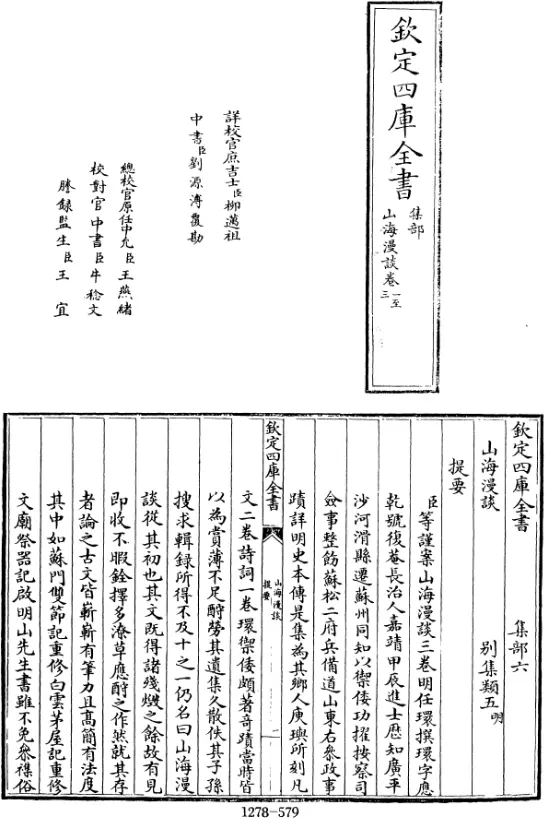 欽定四庫全書
集部
山海漫談卷一至三
詳校官庶吉士臣柳邁祖
中書臣劉源溥覆勘
總校官原任中允臣王燕緒
校對官中書臣牛稔文
謄錄監生臣王宜
欽定四庫全書 集部六
山海漫談 別集類五明
提要
臣等謹案山海漫談三卷明任環撰環字應
乾號復菴長治人嘉靖甲辰進士歷知廣平
沙河滑縣遷蘇州同知以禦倭功擢按察司
僉事整飭蘇松二府兵備道山東右參政事
蹟詳明史本傳是集為其鄉人庾璵所刻凡
欽定四庫全書
山海漫談
提要
一
文二卷詩詞一卷環禦倭頗著奇蹟當時皆
以為賞薄不足酧勞其遺集久散佚其子孫
搜求輯録所得不及十之一仍名曰山海漫
談從其初也其文既得諸殘燬之餘故有見
即收不暇銓擇多潦草應酧之作然就其存
者論之古文皆嶄嶄有筆力且高簡有法度
其中如蘇門雙節記重修白雲茅屋記重修
文廟祭器記啟明山先生書雖不免參襍俗
1278-579